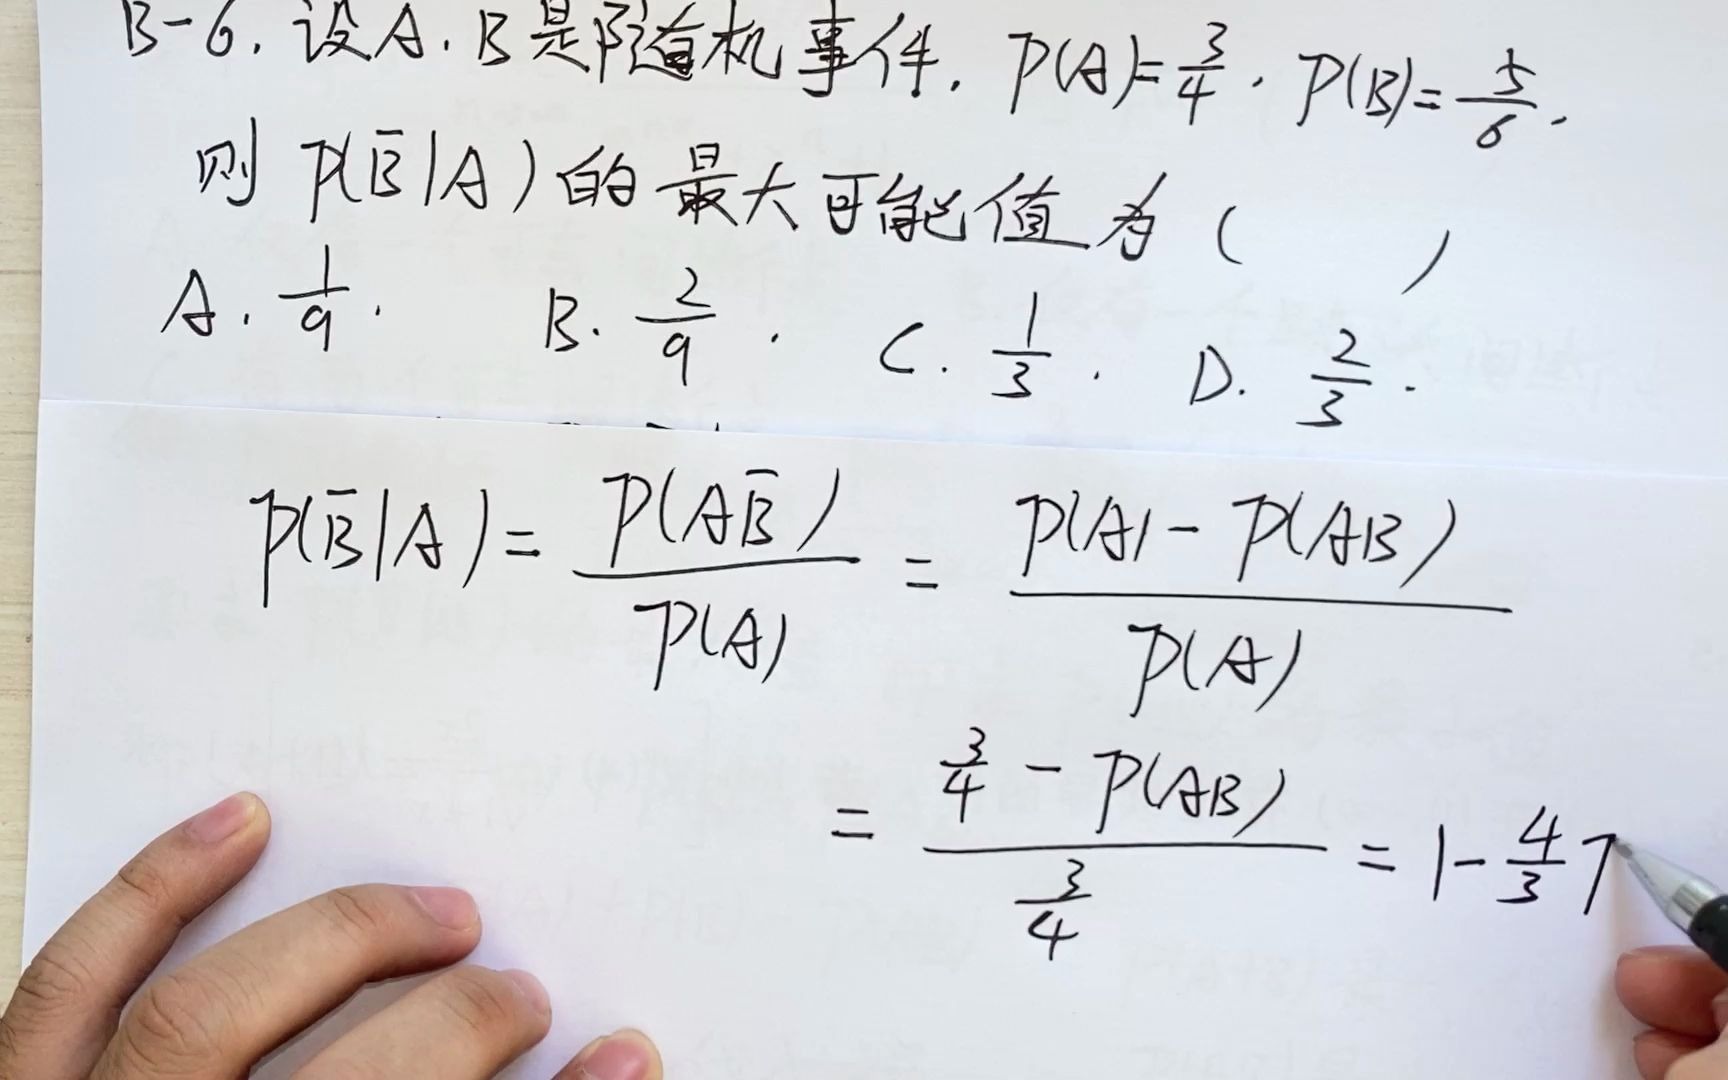 B-6. 设A.B是随机事件. P(A)=3/4. P(B)=5/6.
则 P(B̄|A)的最大可能值为( )
A. 1/9. B. 2/9. C. 1/3. D. 2/3.
P(B̄|A) = P(AB̄)/P(A) = (P(A)-P(AB))/P(A)
= (3/4 - P(AB))/(3/4) = 1 - 4/3 P